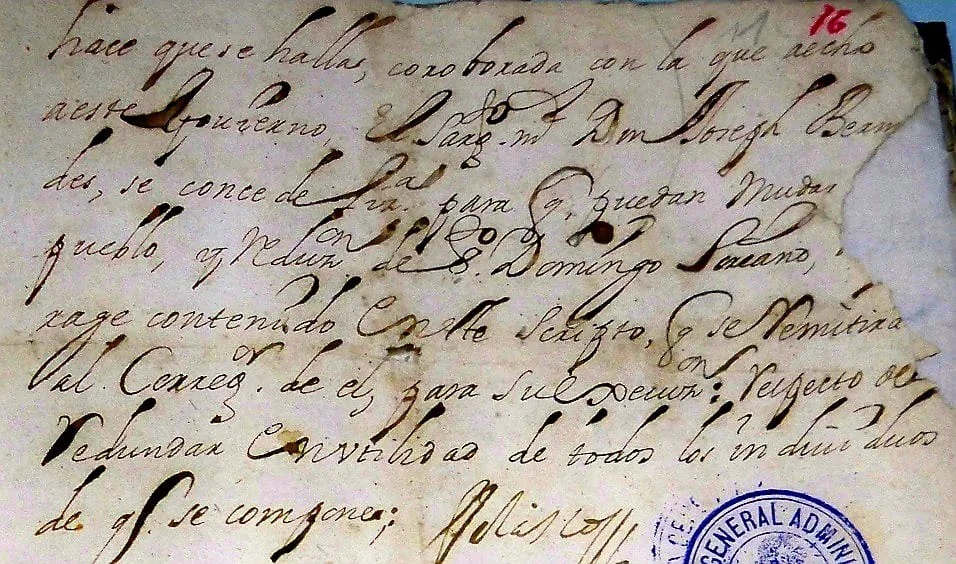 76
hace que se halla, coroborada con la que aecho
aeste Gouierno, El Sarg.to m.r Don Joseph Berm
des, se concede Liz.a para q. puedan Mudar
pueblo, y Reduz.on de S.to Domingo Soriano,
rage contenido En este Scripto, q se Remitira
al Correg.or de el, para su Execuz.on: Respecto de
Redundar En vtilidad de todos los indiuiduos
de q. se compone;
GENERAL ADMINI